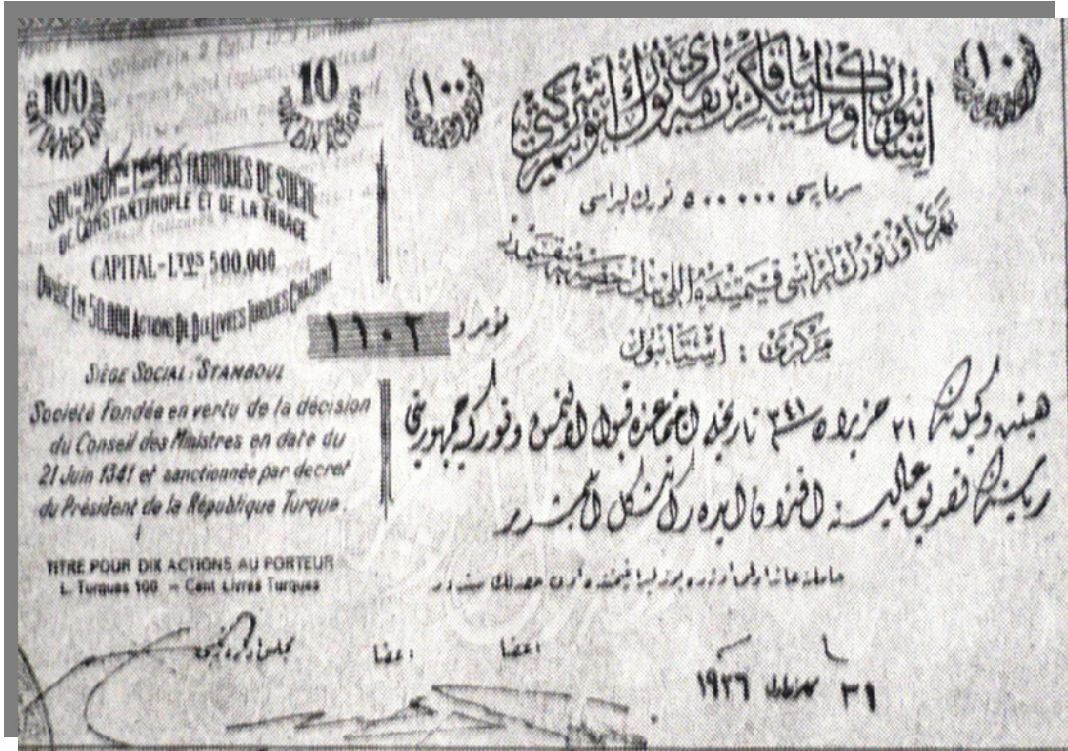 100
CENT LIVRES TURQUES
10
DIX ACTIONS
SOC^TÉ ANON^ME T^QUE DES FABRIQUES DE SUCRE
DE CONSTANTINOPLE ET DE LA THRACE
CAPITAL-LTQS 500,000
DIVISÉ EN 50,000 ACTIONS DE DIX LIVRES TURQUES CHACUNE
SIÈGE SOCIAL: STAMBOUL
Société fondée en vertu de la décision
du Conseil des Ministres en date du
21 Juin 1341 et sanctionnée par decret
du Président de la République Turque.
TITRE POUR DIX ACTIONS AU PORTEUR
L. Turques 100 — Cent Livres Turques
١٠٠
١٠
استانبول وتراكيا شكر فابريقه لرى تورك آنونيم شركتى
سرمايه سى ٥٠٠٠٠٠ تورك ليراسى
بهرى اون تورك ليراسى قيمتنده اللى بيك حصه يه منقسمدر
مركزى : استانبول
نومرو ١١٠٢
هيئت وكيله نك ٢١ حزيران سنه ٣٤١ تاريخلى اجتماعنده قبول اولنمش و توركيه جمهوريتى
رياستنك تصديق عاليسنه اقتران ايده رك تشكل ايتمشدر
حصه لك سنددر
مجلس اداره رئيسى
اعضا
اعضا
٣١ مارت ١٩٢٦